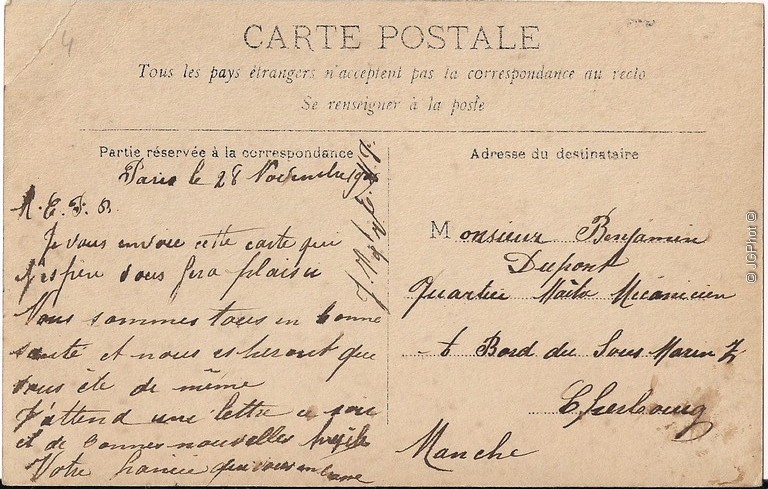 4
CARTE POSTALE
Tous les pays étrangers n'acceptent pas la correspondance au recto
Se renseigner à la poste
Partie réservée à la correspondance
Paris le 28 Novembre
Je vous envoie cette carte qui
j'espère vous fera plaisir
Nous sommes tous en bonne
santé et nous esperont que
vous ête de même
J'attend une lettre ce soir
et de bonnes nouvelles
Votre fiancée qui vous embrasse
Adresse du destinataire
Monsieur Benjamin
Dupont
Quartier Maître Mécanicien
à Bord du Sous Marin Z
Cherbourg
Manche
© JGPhot ©